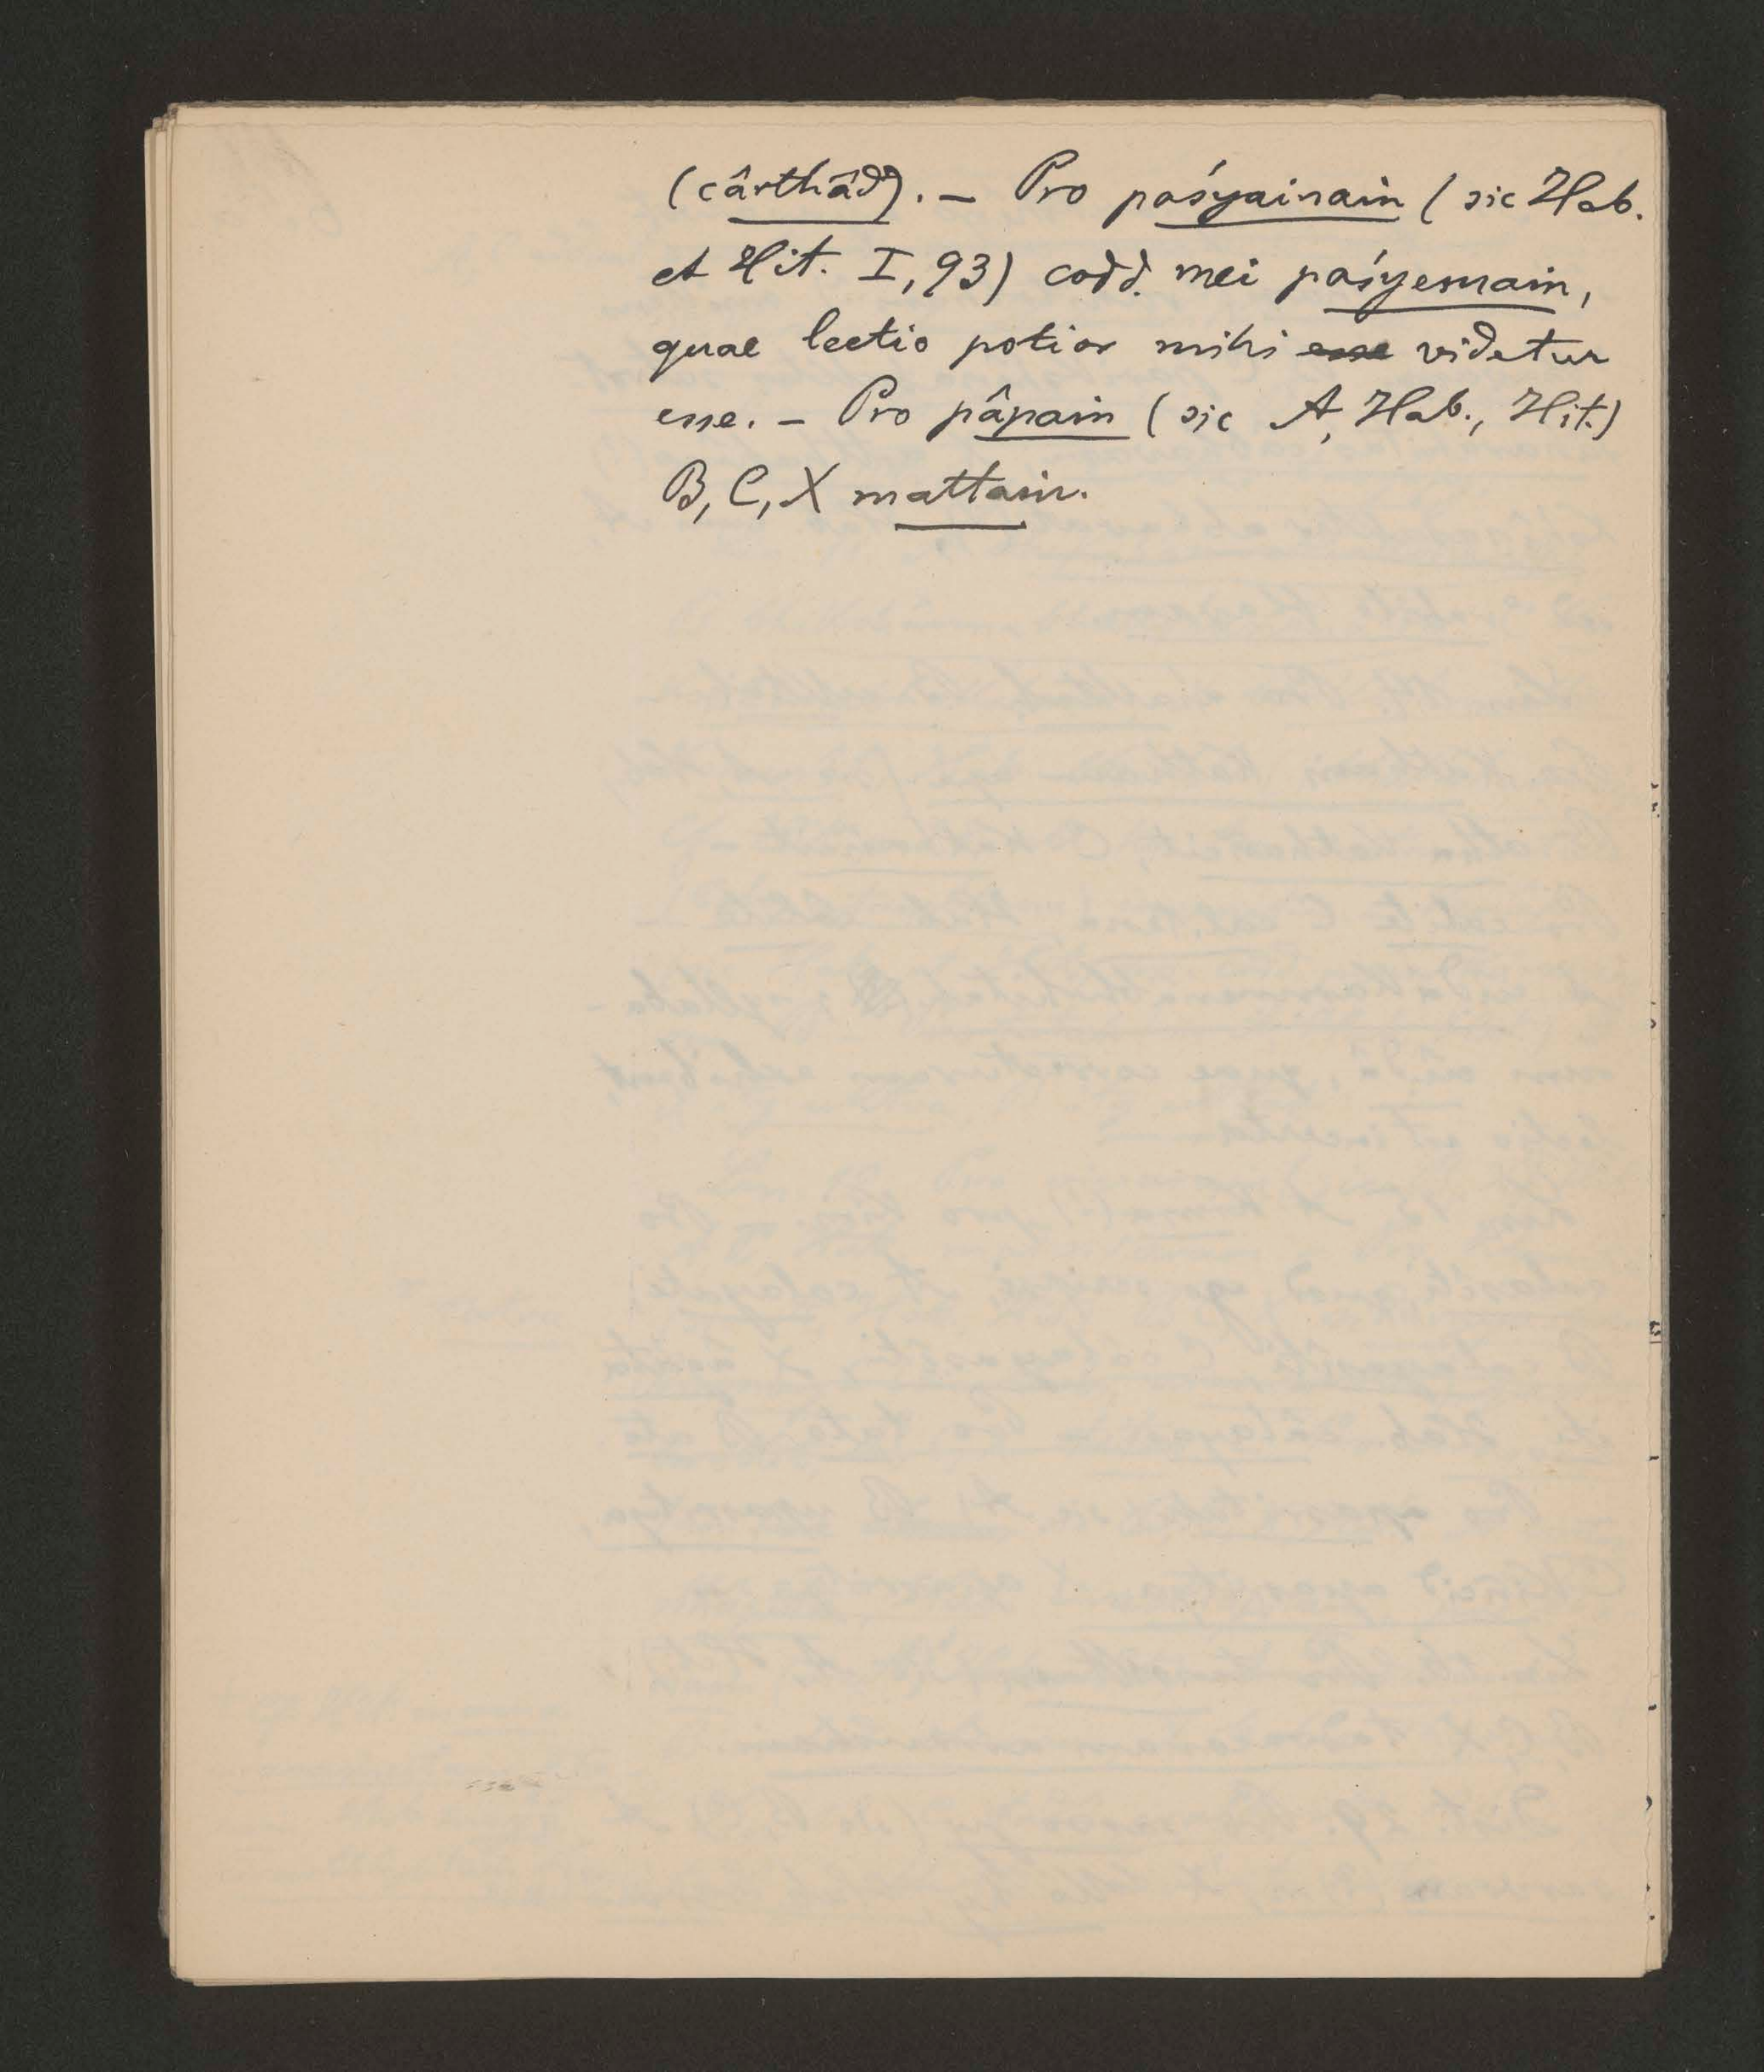 (cârthâd). — Pro paśyainain (sic Hab.
et Hit. I, 93) codd. mei paśyemain,
quae lectio potior mihi esse videtur
esse. — Pro pâpain (sic A, Hab., Hit.)
B, C, X mattain.